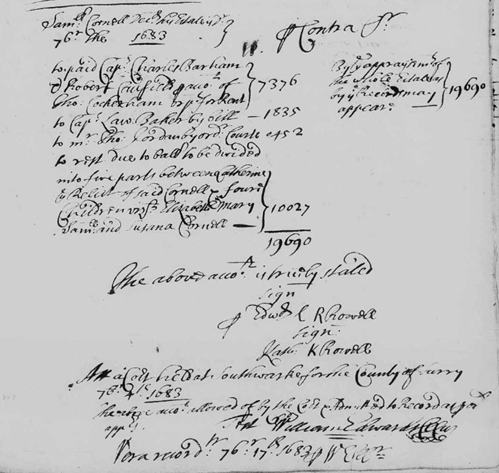 Sam:ll Cornell Dec:d his Estate is D:r
76:r the 1683 ⅌ Contra C:r
to paid Cap:t Charles Barham
& Robert Caufield acco:t of
Tho: Cockerham 7376
to Cap:t Law: Baker by bill — 1835
to m:r Tho: Jordan by ord:r Court 0452
to rest due to ball: to be divided
into five parts between
Relict of said Cornell & four
Children viz:t Elizabeth mary
Sam:ll and Susana Cornell — 10027
19690
By y:e appraysm:t of
the said Estate as
by y:e Record may
appear 19690
The above acco:t is truely stated
sign
⅌ Edw:d R Rowell
sign
Kath: K Rowell
Att a Co:rt held at Southwarke for the County of Surry
76:r 4:th 1683
the above acco:t allowed of by the Co:rt & Ordered to Record
Test William Edwards Cl Cur
Vera record:r 76:r 17:th 1683 ⅌ W E Cl Cur